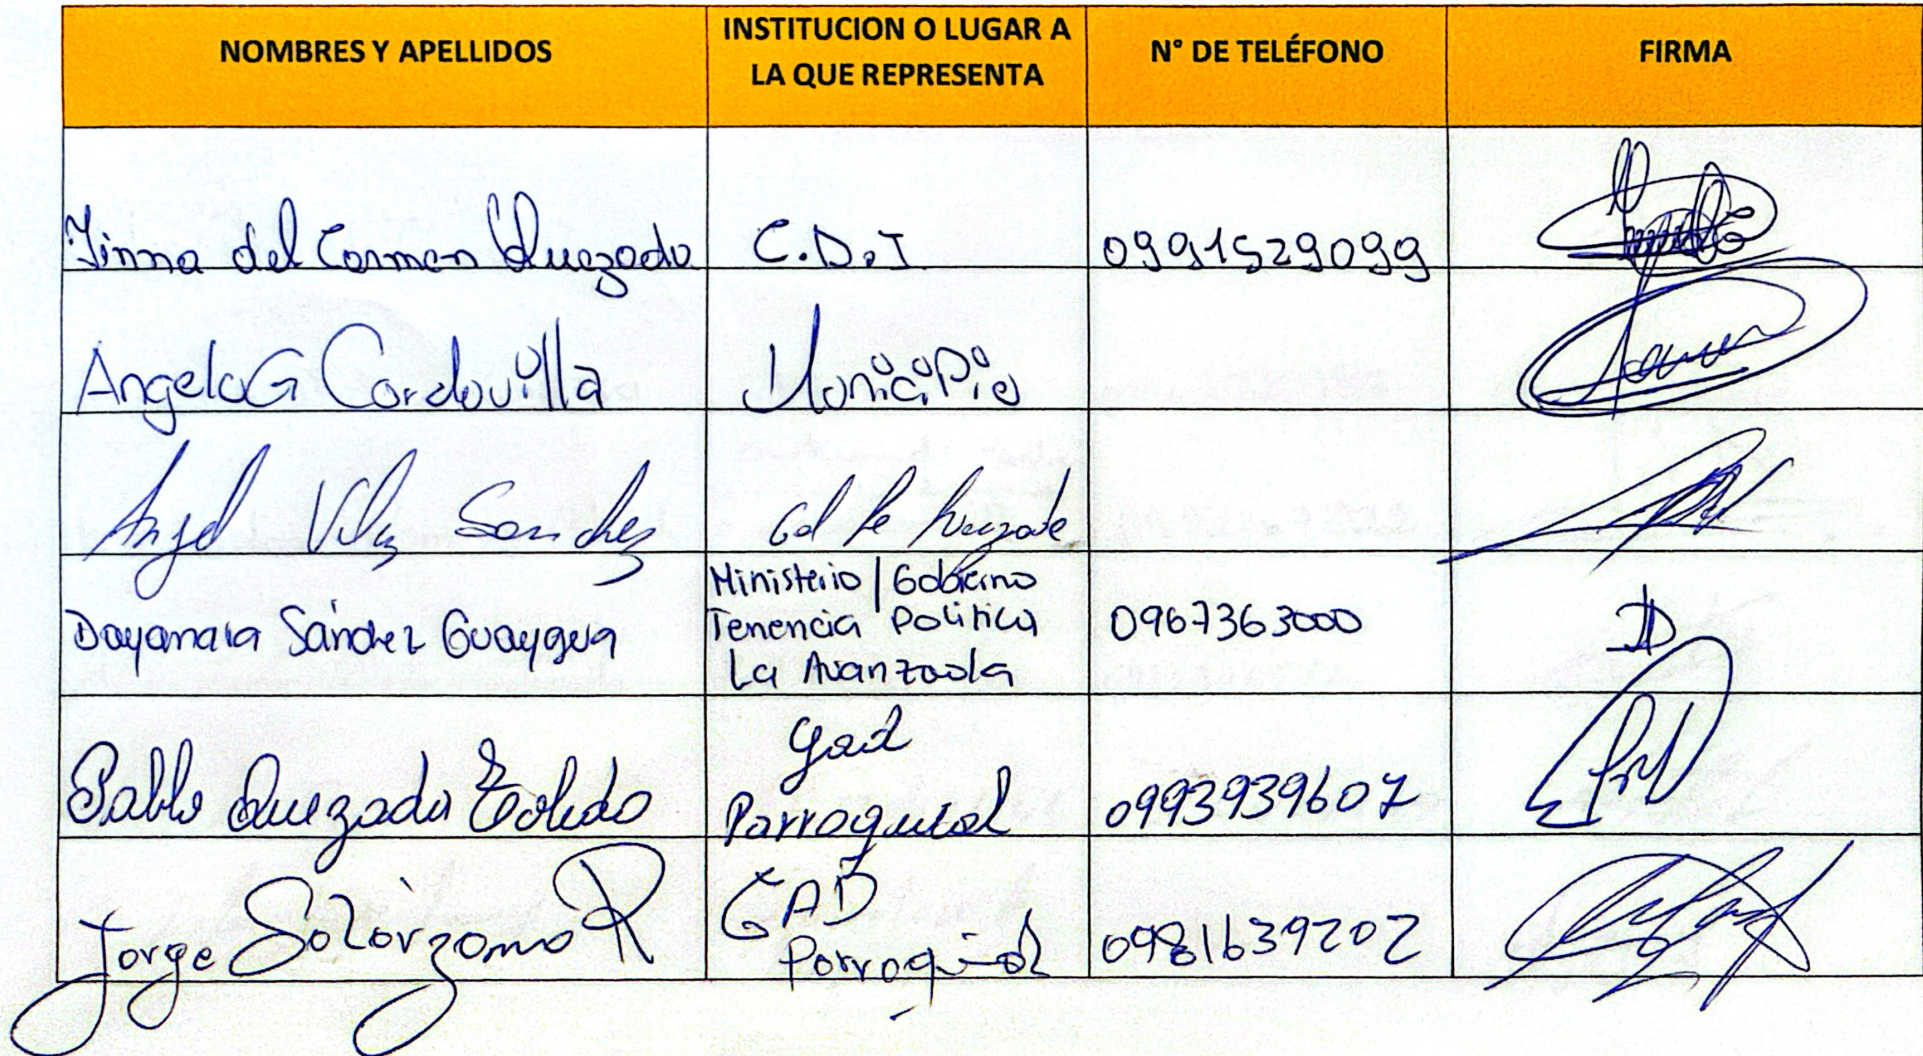 NOMBRES Y APELLIDOS
INSTITUCION O LUGAR A
LA QUE REPRESENTA
N° DE TELÉFONO
FIRMA
del Carmen Quezada C.D.I 0991529099
Angela G Cordovilla Municipio
Angel Velez Sanchez
Dayanara Sánchez Guaygua
Ministerio | Gobierno
Tenencia Politica
La Avanzada
0967363000
Pablo Quezada Toledo
Gad
Parroquial
0993939607
Jorge Solòrzano R
GAD
Parroquial
0981639202